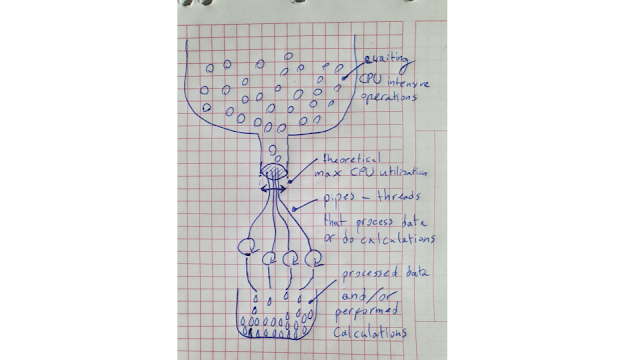 awaiting
CPU intensive
operations
theoretical
max CPU utilization
pipes - threads
that process data
or do calculations
processed data
and/or
performed
calculations